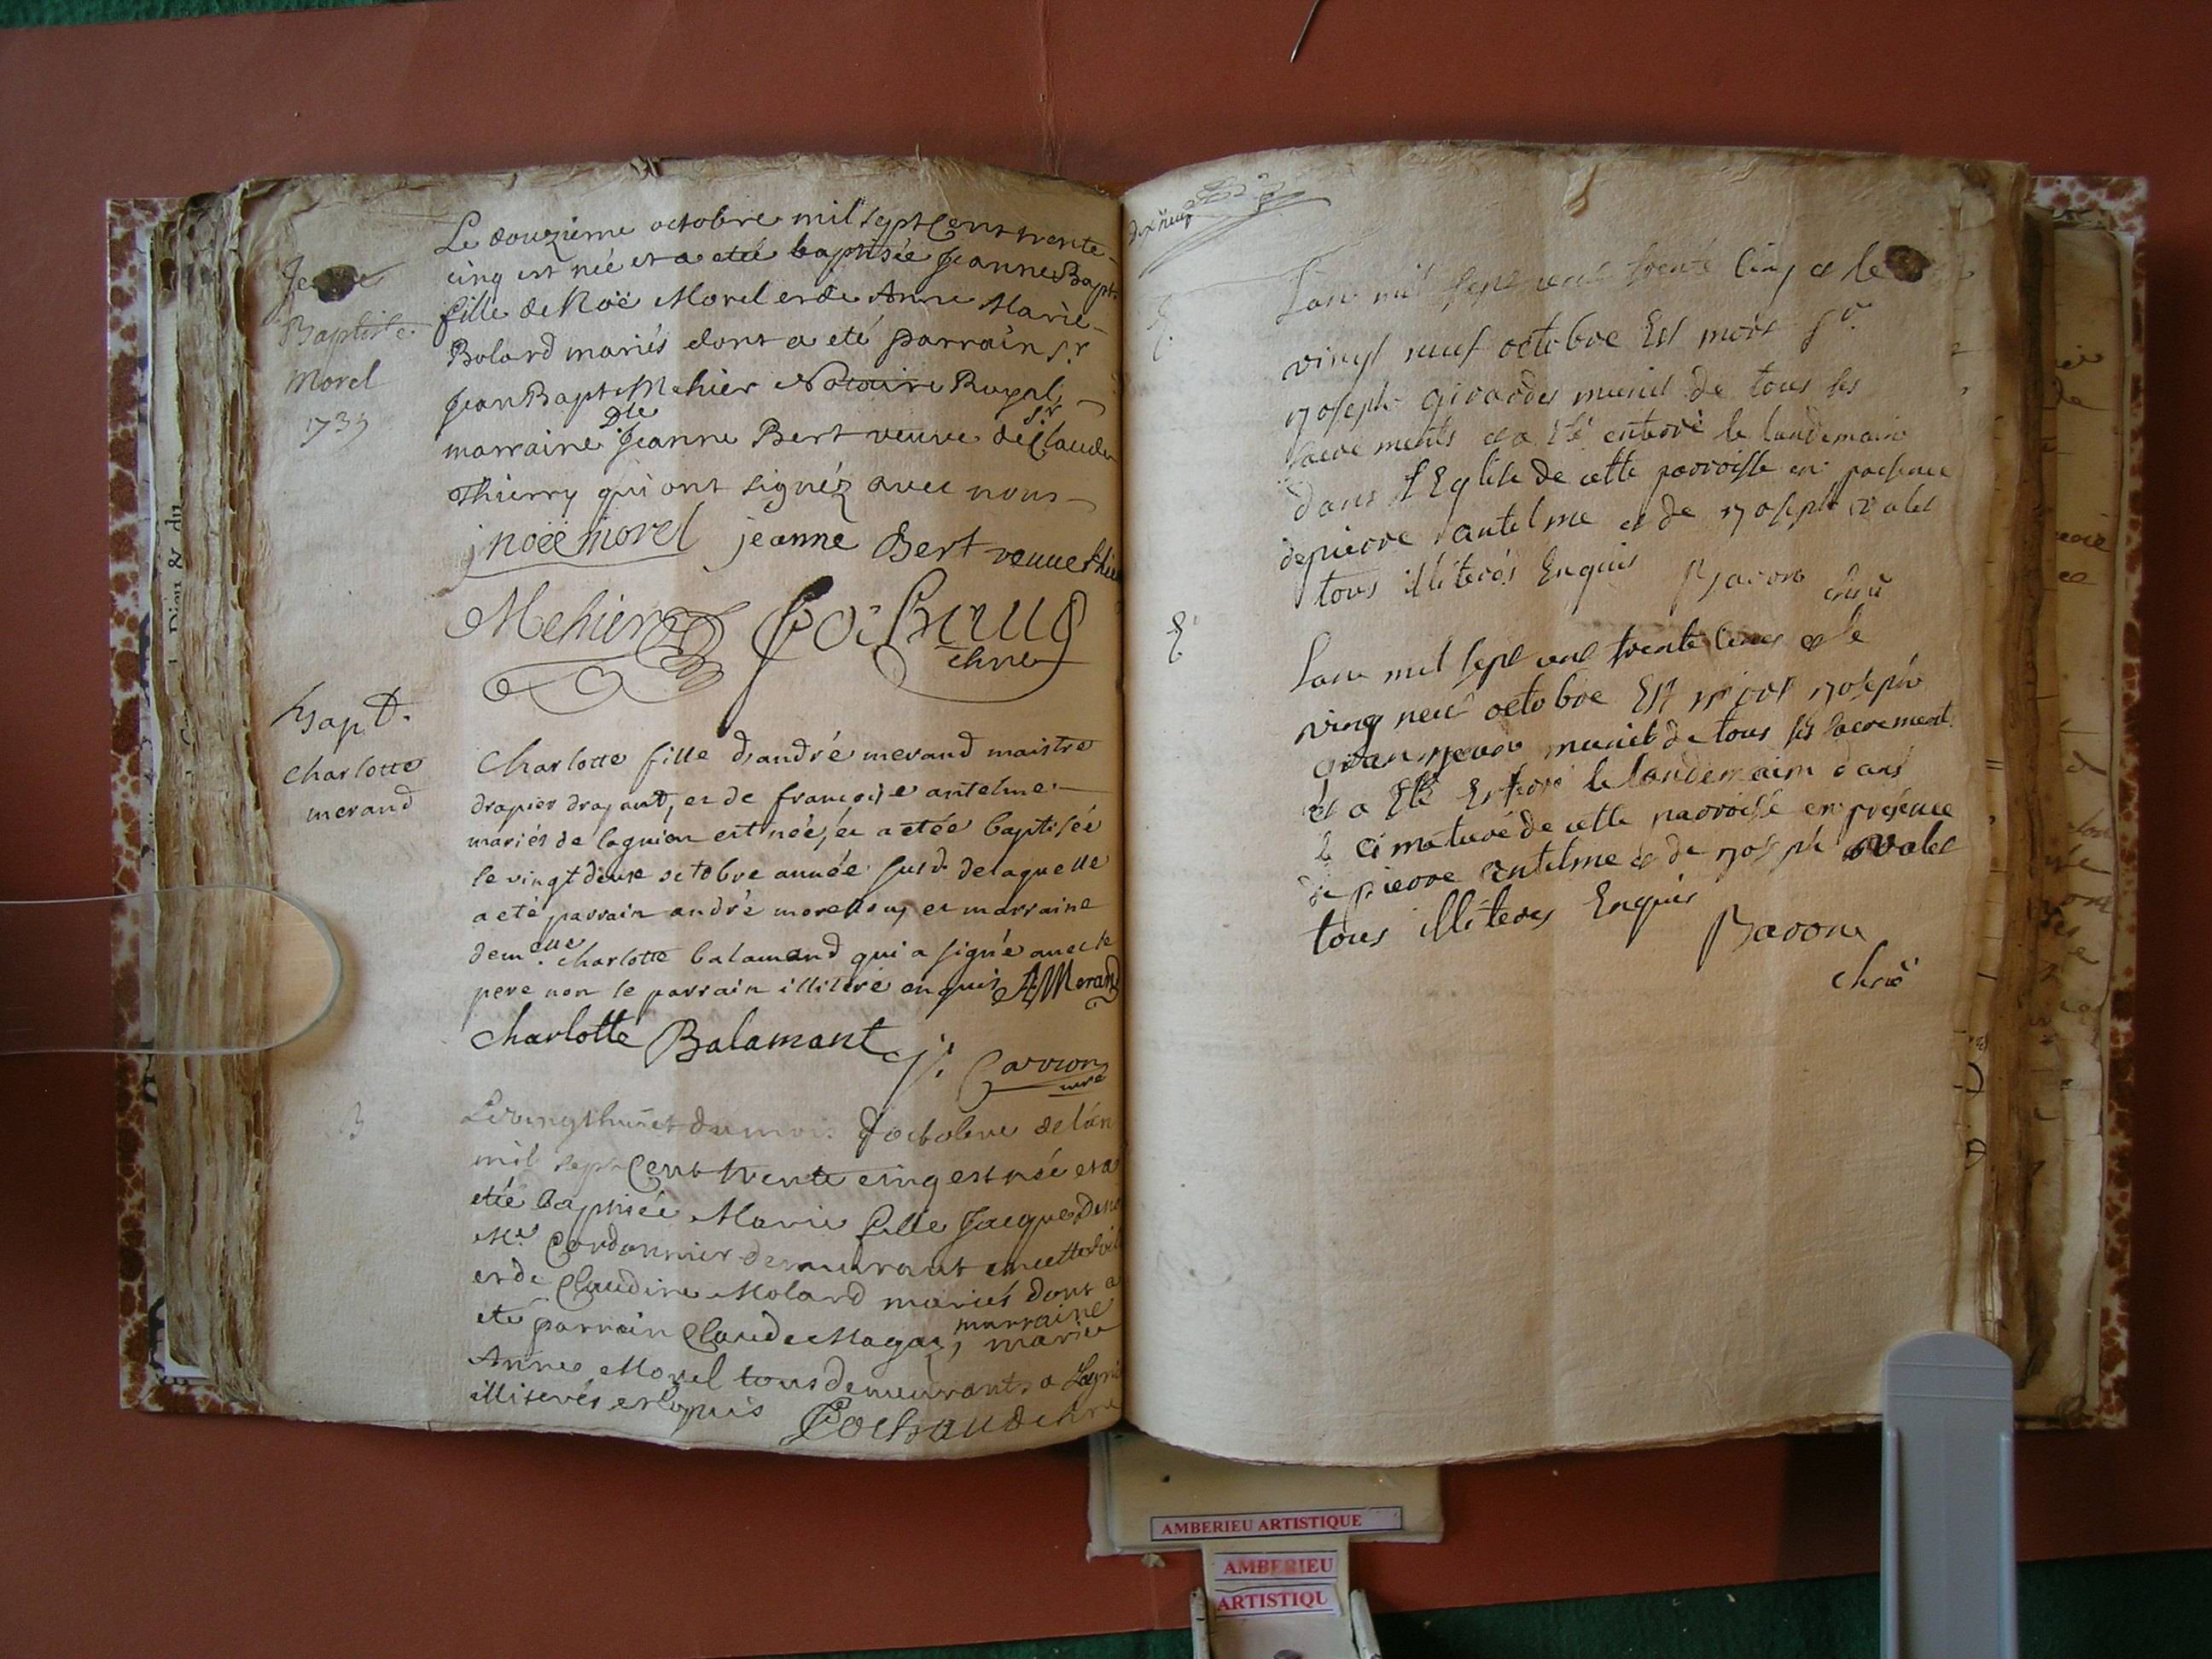 Jeanne
Baptiste
Morel
1735
Le douzieme octobre mil sept Cent trente
cinq est née et a etée baptisée Jeanne Bapt.
fille de Noë Morel et de Anne Marie
Bolard mariés dont a eté parrain Sr.
Jean Bapt. Mehier Notaire Royal,
marraine Dle Jeanne Bert veuve de Sr Claude
Thierry qui ont signéz avec nous
noëe morel jeanne Bert veuve
Mehier
chne
Bapt.
Charlotte
merand
Charlotte fille d'andré merand maistre
drapier drapant, et de françoise antelme
mariés de lagnieu est née, et a etée baptisée
le vingt deux octobre année susd. de laquelle
a eté parrain andré et marraine
demelle. charlotte balamand qui a signé avec le
pere non le parrain illiteré enquis AMerand
Charlotte Balamant
j. Carrion
curé
Le vingt huict du mois d'octobre de l'an
mil sept Cent trente cinq est née et a
etée baptisée Marie fille Jacque
Me. Cordonnier demeurant en cette
et de Claudine Molard mariés dont a
eté parrain Claude Magaz, marraine marie
Anne Morel tous demeurants a
illiterés enquis Cochaud chne
dix neuf
L'an mil sept cent trente cinq et le
vingt neuf octobre Est mort Sr.
joseph girardes munit de tous ses
sacrements et a été enterré le landemain
dans l'Eglise de cette parroisse en presence
de pierre antelme et de joseph valet
tous illiterés Enquis Baron chne
L'an mil sept cent trente cinq et le
ving neuf octobre Est mort joseph
munit de tous ses sacrement
et a Eté Enterré le landemain dans
le cimetiere de cette parroisse en présence
de pierre antelme et de joseph valet
tous illiteres Enquis
Baron
chne
Dijon & du
AMBERIEU ARTISTIQUE
AMBERIEU
ARTISTIQU